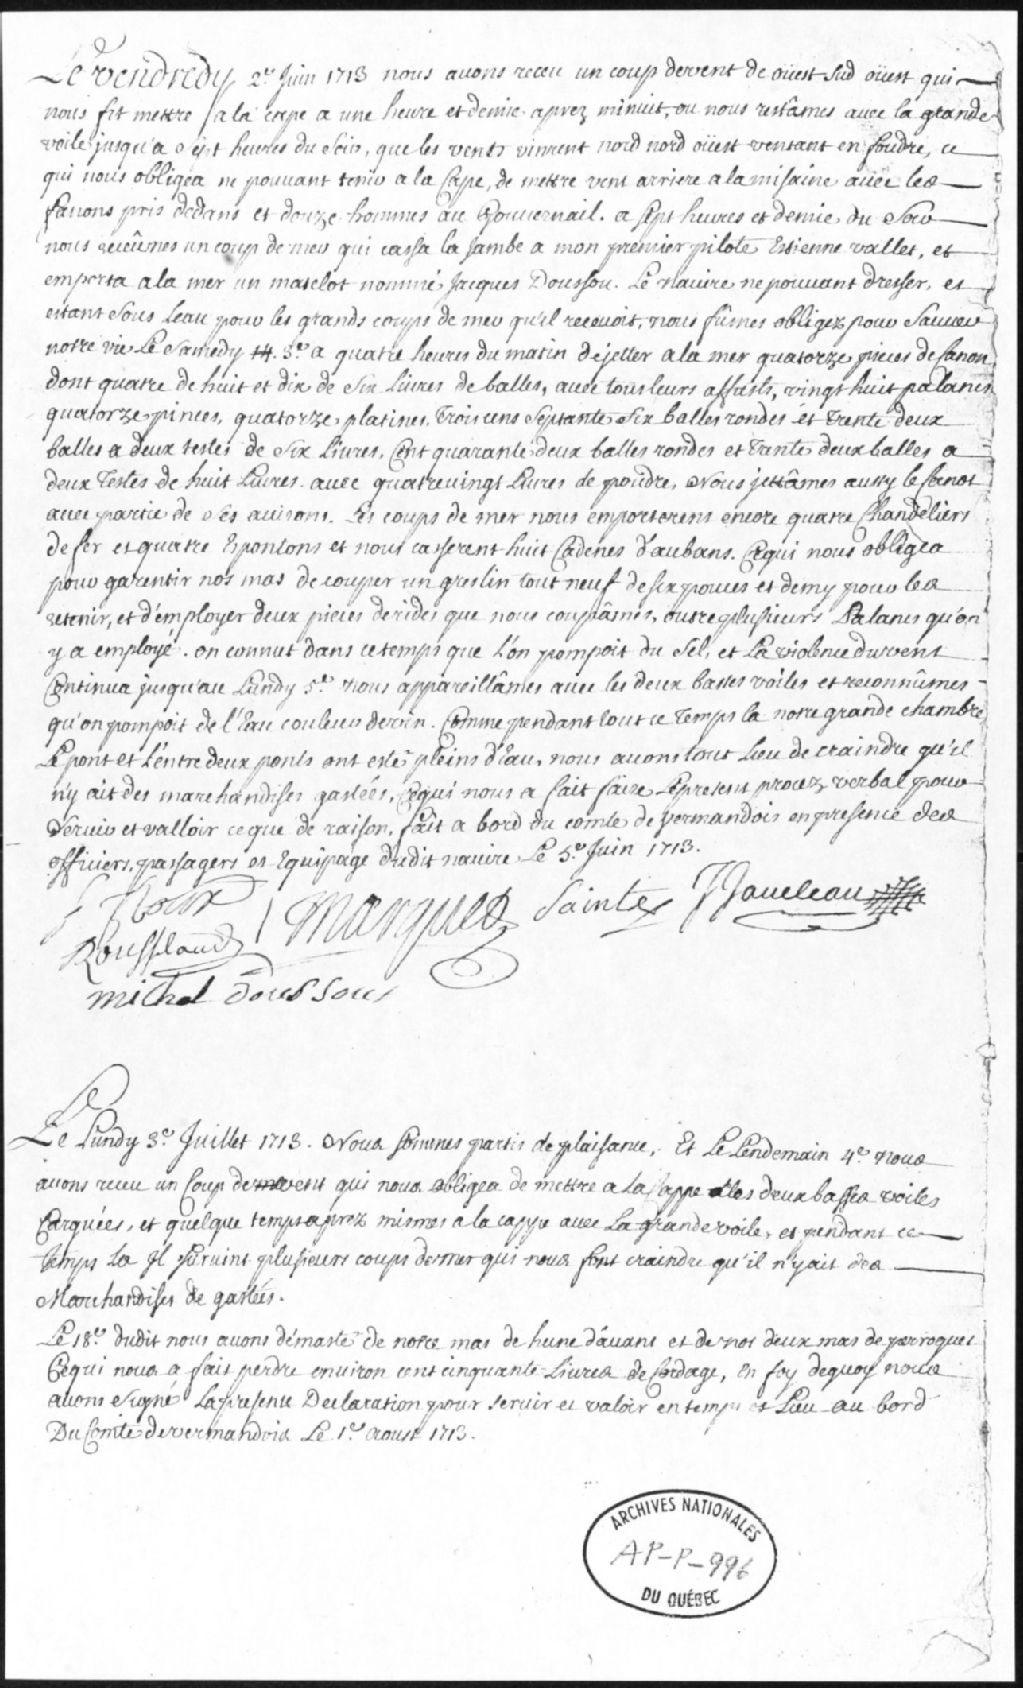 Le Vendredy 2e Juin 1713 nous avons receu un coup de vent de oüest sud oüest qui
nous fit mettre a la cape a une heure et demie aprez minuit, ou nous restâmes avec la grande
voile jusqu'a sept heures du Soir, que les vents vinrent nord nord oüest ventant en foudre, ce
qui nous obligea ne pouvant tenir a la Cape, de mettre vent arriere a la misaine avec les
fanons pris dedans et douze hommes au Gouvernail. a sept heures et demie du Soir
nous receûmes un coup de mer qui cassa la Jambe a mon premier pilote Estienne vallet, et
emporta a la mer un matelot nommé Jacques Doussou. Le navire ne pouvant dresser, et
estant Sous Leau pour les grands coups de mer qu'il recevoit, nous fûmes obligez pour Sauver
notre vie Le Samedy 3e a quatre heures du matin de jetter a la mer quatorze pieces de Canon
dont quatre de huit et dix de Six Livres de balles, avec tous leurs affusts, vingt huit palancs
quatorze pinces, quatorze platines, Trois cens Septante Six balles rondes et Trente deux
balles a deux testes de Six Livres, Cent quarante deux balles rondes et Trente deux balles a
deux Testes de huit Livres. avec quatrevingt Livres de poudre, Nous jettâmes aussy le Canot
avec partie de Ses avirons. Les coups de mer nous emporterent encore quatre Chandeliers
de fer et quatre Espontons et nous casserent huit Cadenes d'aubans. Ce qui nous obligea
pour garentir nos mas de couper un greslin tout neuf de six pouces et demy pour les
retenir, et d'émployer deux pieces de rides que nous coupâsmes, outre plusieurs Palancs qu'on
y a employé. on connut dans ce temps que l'on pompoit du Sel, et La violence du vent
Continua jusqu'au Lundy 5e Nous appareillâmes avec les deux basses voiles et reconnûmes
qu'on pompoit de l'Eau couleur de vin. Comme pendant tout ce Temps la notre grande chambre
Le pont et L'entre deux ponts ont estés pleins d'Eau, nous avons tout Lieu de craindre qu'il
n'y ait des marchandises gastées, Ce qui nous a fait faire Le present procez verbal pour
Servir et valloir ce que de raison, fait a bord du comte de Vermandois en presence des
officiers, passagers et Equipage dudit navire Le 5e Juin 1713.
Marques Sainte
Rousseland
michel doussous
Le Lundy 3e Juillet 1713. Nous Sommes partis de plaisance, Et Le Lendemain 4e nous
avons receu un Coup de vent qui nous obligea de mettre a La Cappe les deux basses voiles
Carguées, et quelque temps aprez mismes a la cappe avec La grande voile, et pendant ce
temps La Il survint plusieurs coups de mer qui nous font craindre qu'il n'y ait des
Marchandises de gastées.
Le 18e dudit nous avons démasté de notre mas de hune d'avant et de nos deux mas de perroquet
Ce qui nous a fait perdre environ cent cinquante Livres de Cordage, En foy de quoy nous
avons Signé La presente Declaration pour servir et valoir en temps et Lieu au bord
Du Comte de vermandois Le 1er Aoust 1713.
ARCHIVES NATIONALES
AP-P-996
DU QUÉBEC